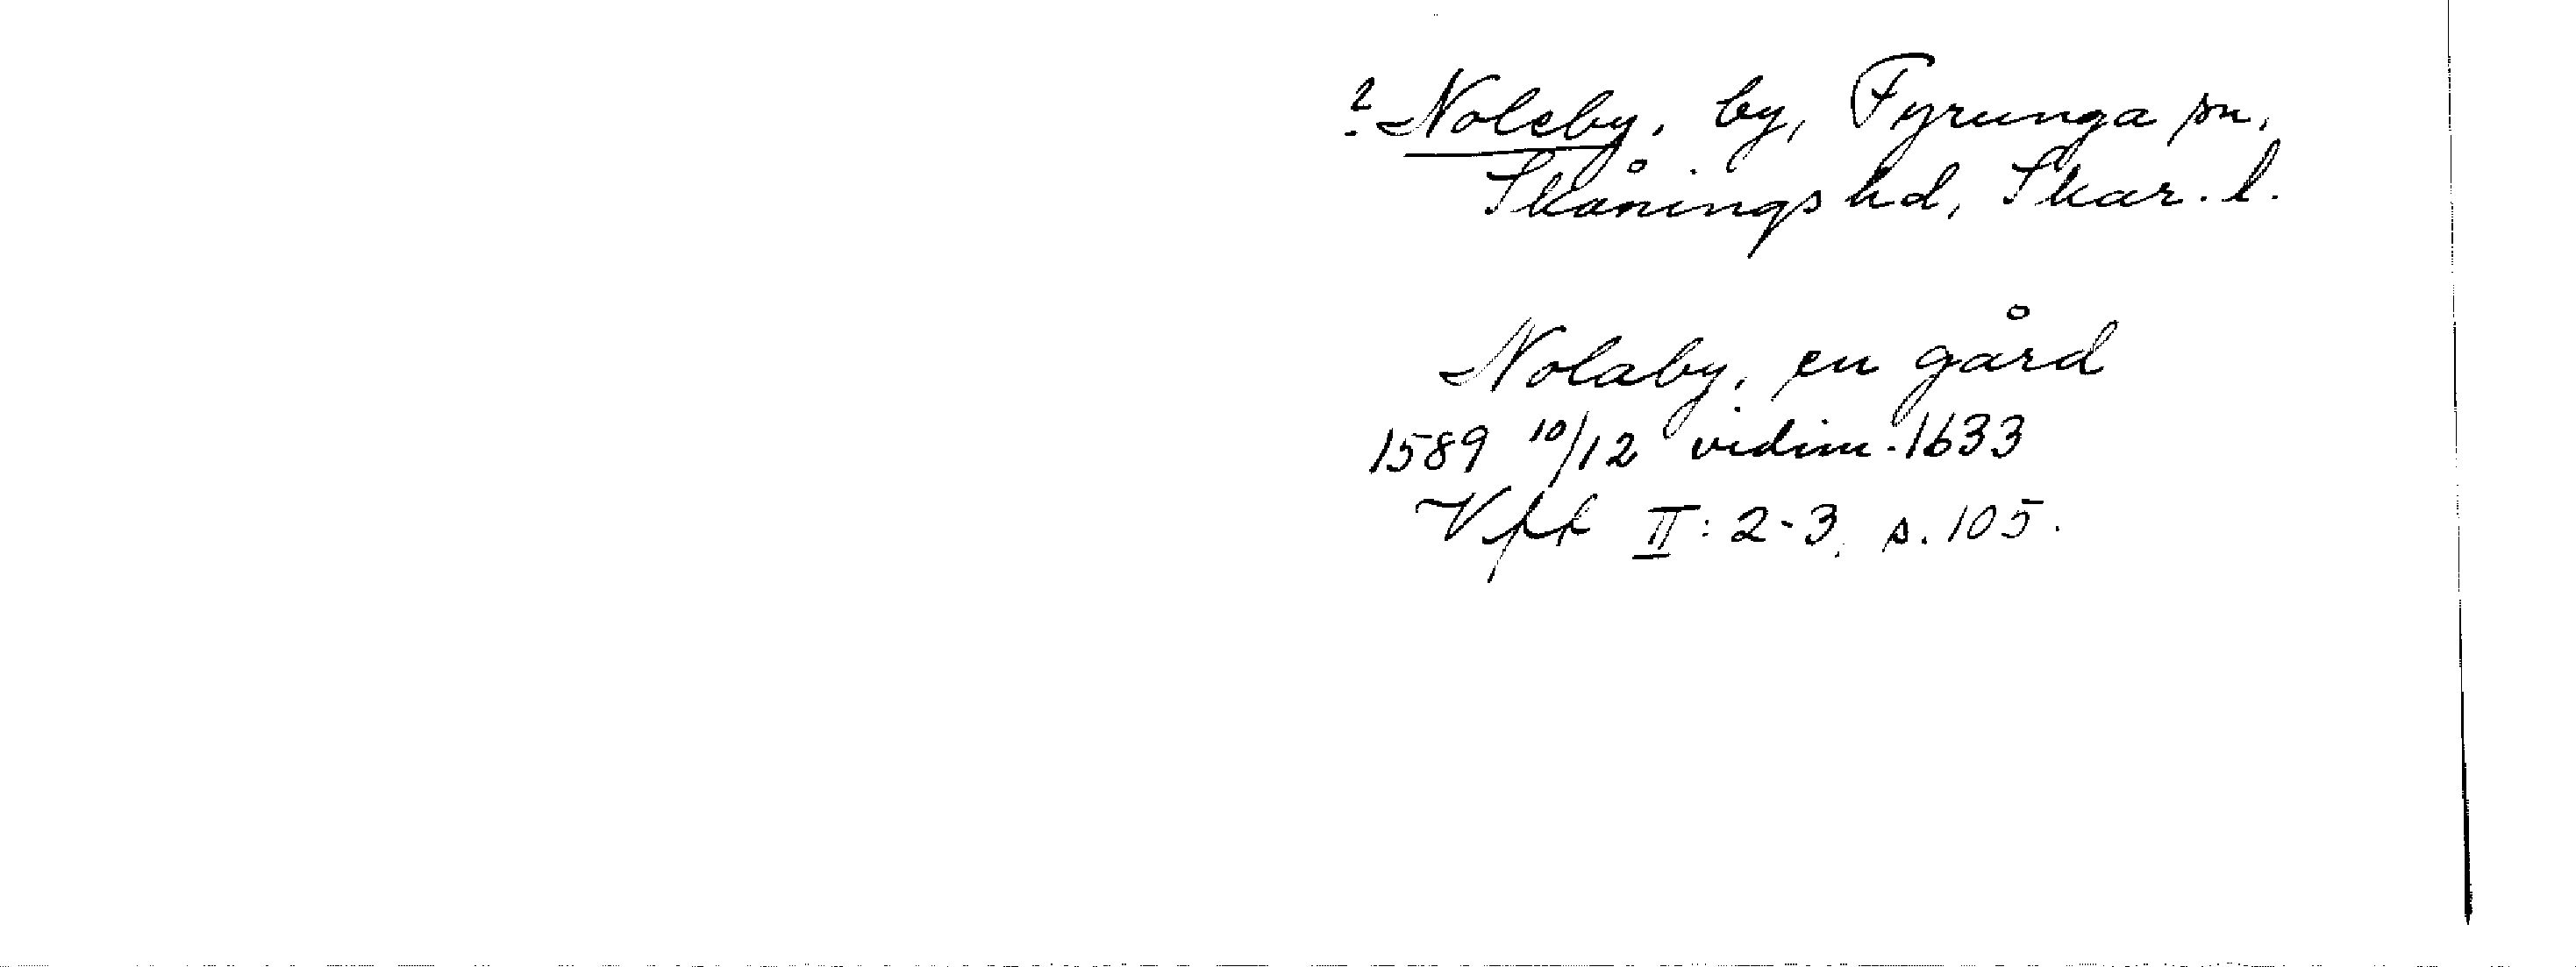 ? Noleby, by, Fyrunga sn,
Skånings hd, Skar. l.
Nolaby, en gård
1589 10/12 vidim. 1633
Vft II: 2-3, s. 105.